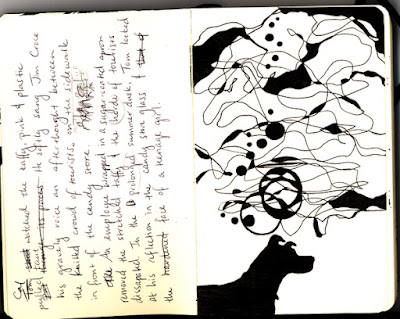 Cal
Tom watched the taffy, pink & plastic
pulled taut through its paces. He softly sang Jim Croce
his gravely voice an afterthought between
the knitted crowd of tourists, and the sidewalk
in front of the candy store.
An employee wrapped in a sugar-coated apron
removed the stretched taffy & the herds of tourists
dissapated. In the prolonged summer dusk, Tom looked
at his reflection in the candy store glass &
the face of a teenage girl.